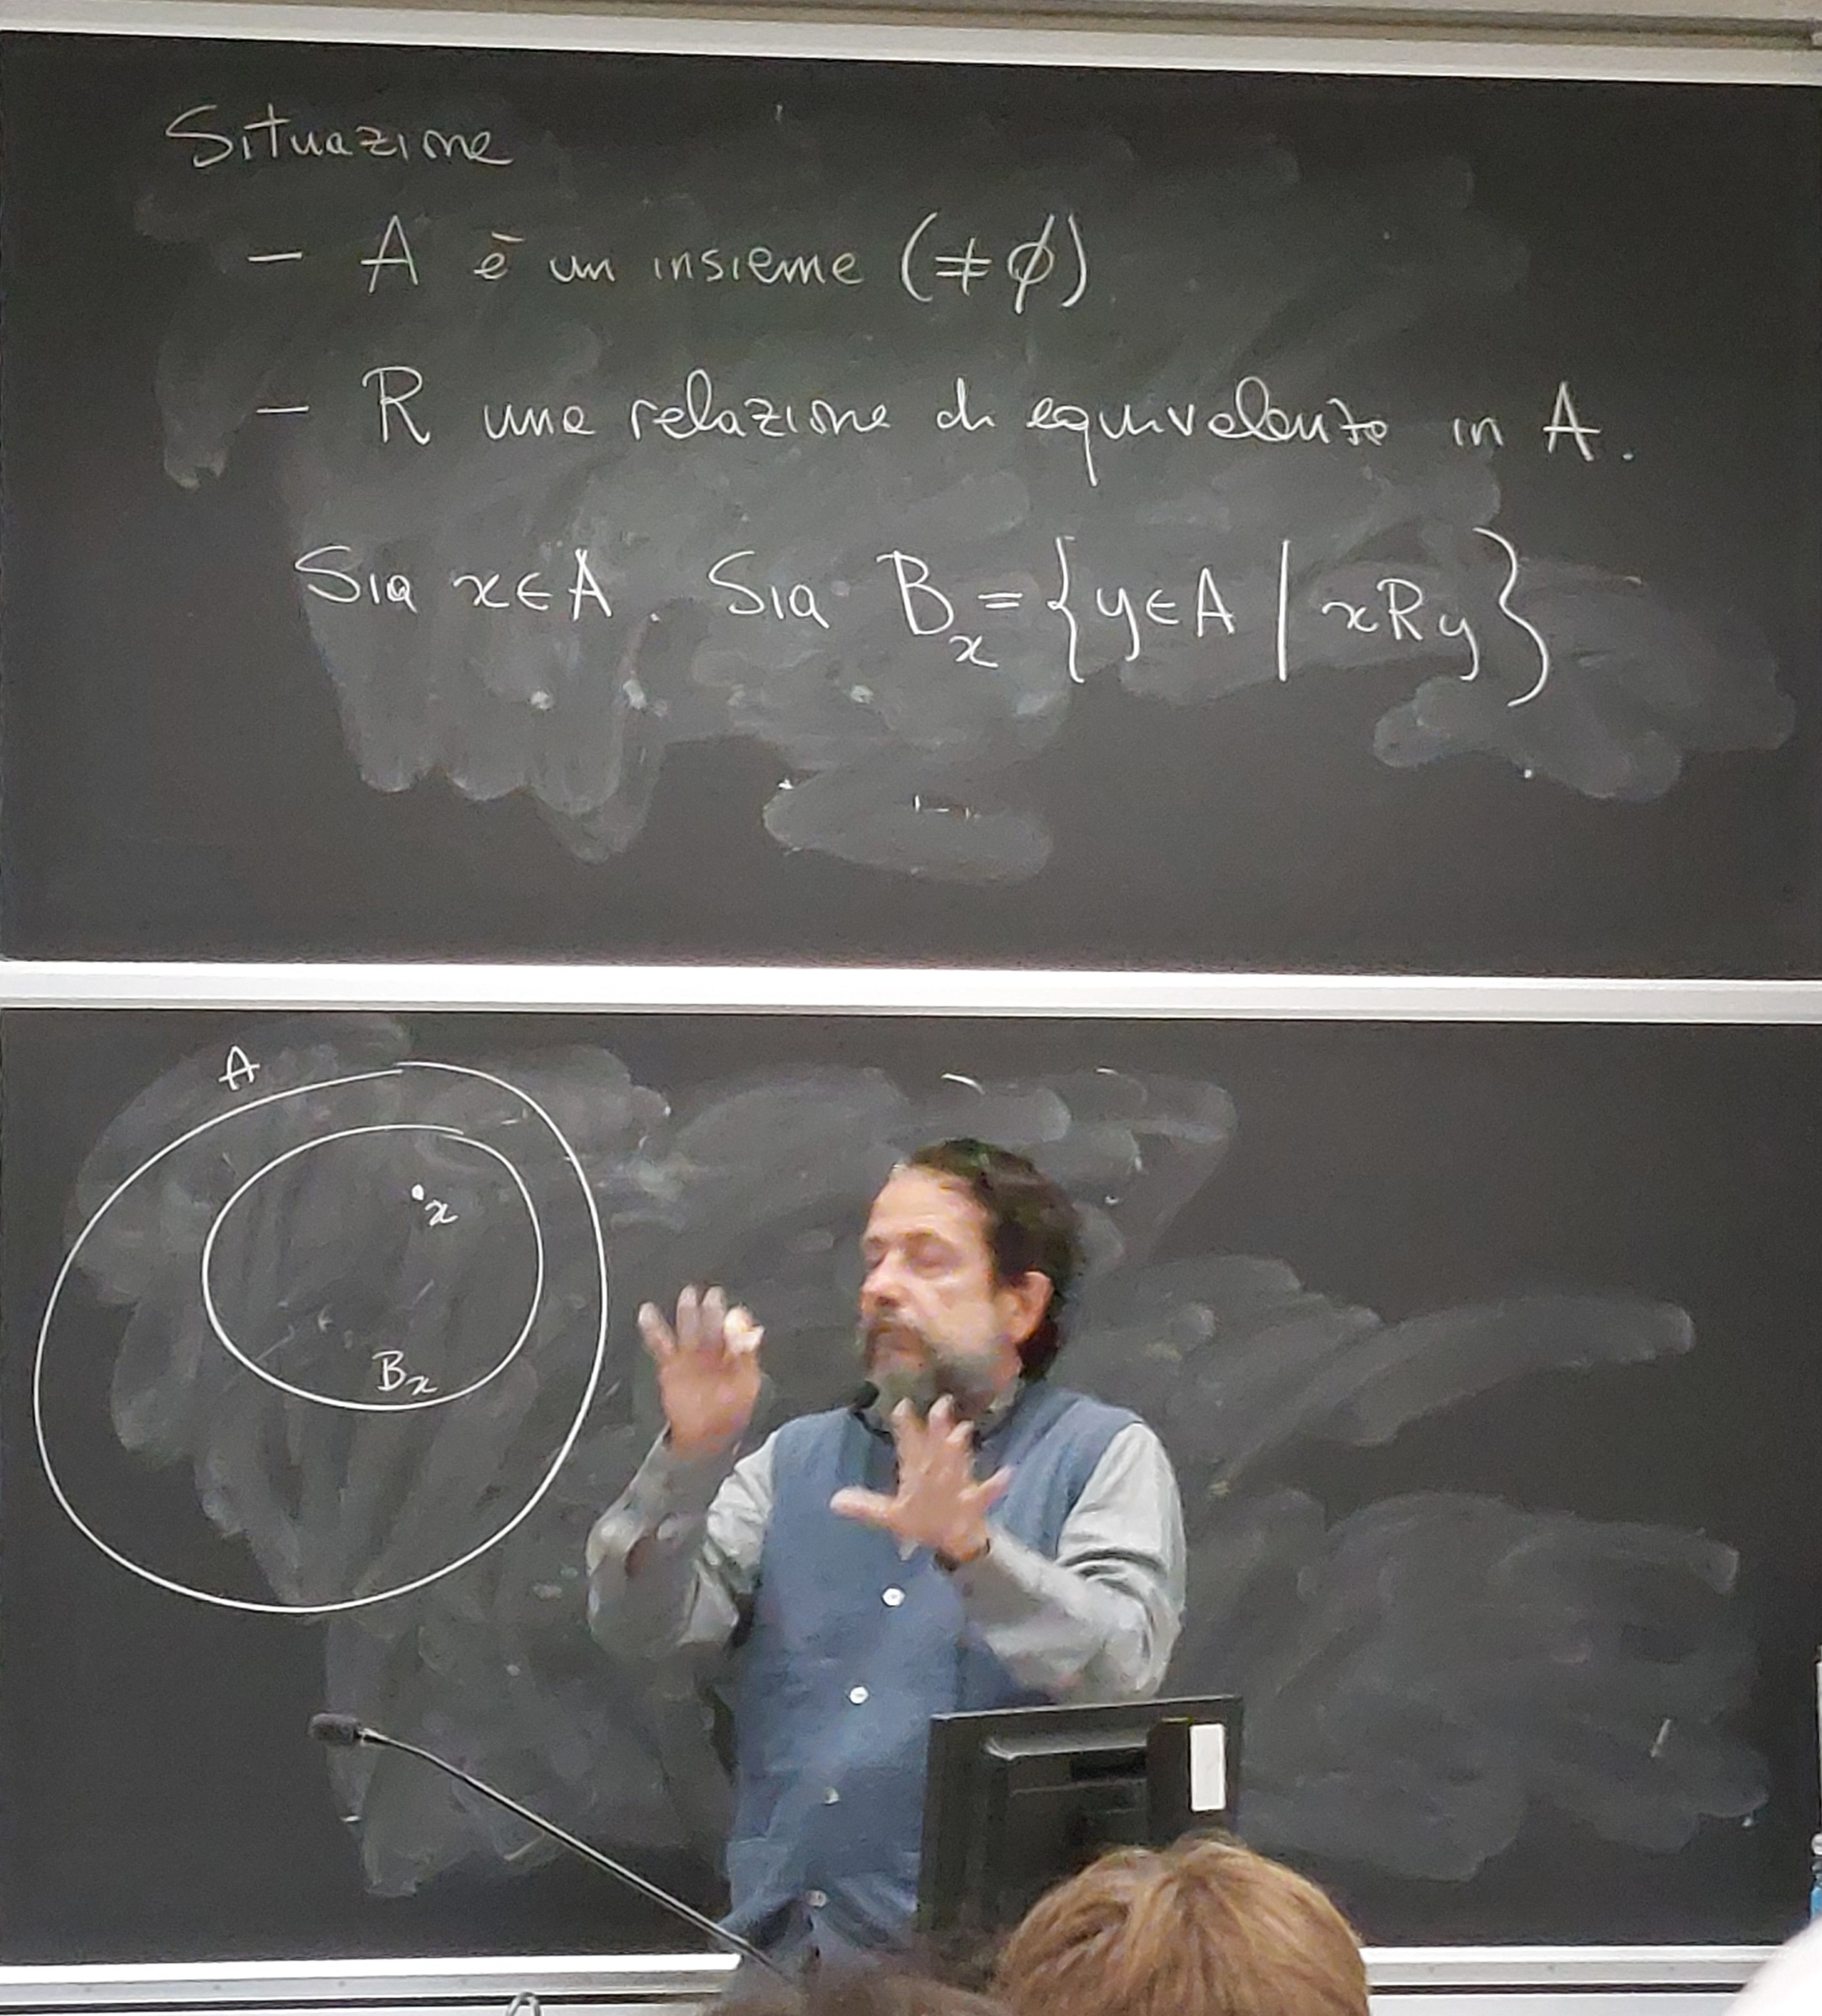 Situazione
– A è un insieme (≠∅)
– R una relazione di equivalenza in A.
Sia x∈A. Sia Bₓ={y∈A | xRy}
A
x
Bₓ